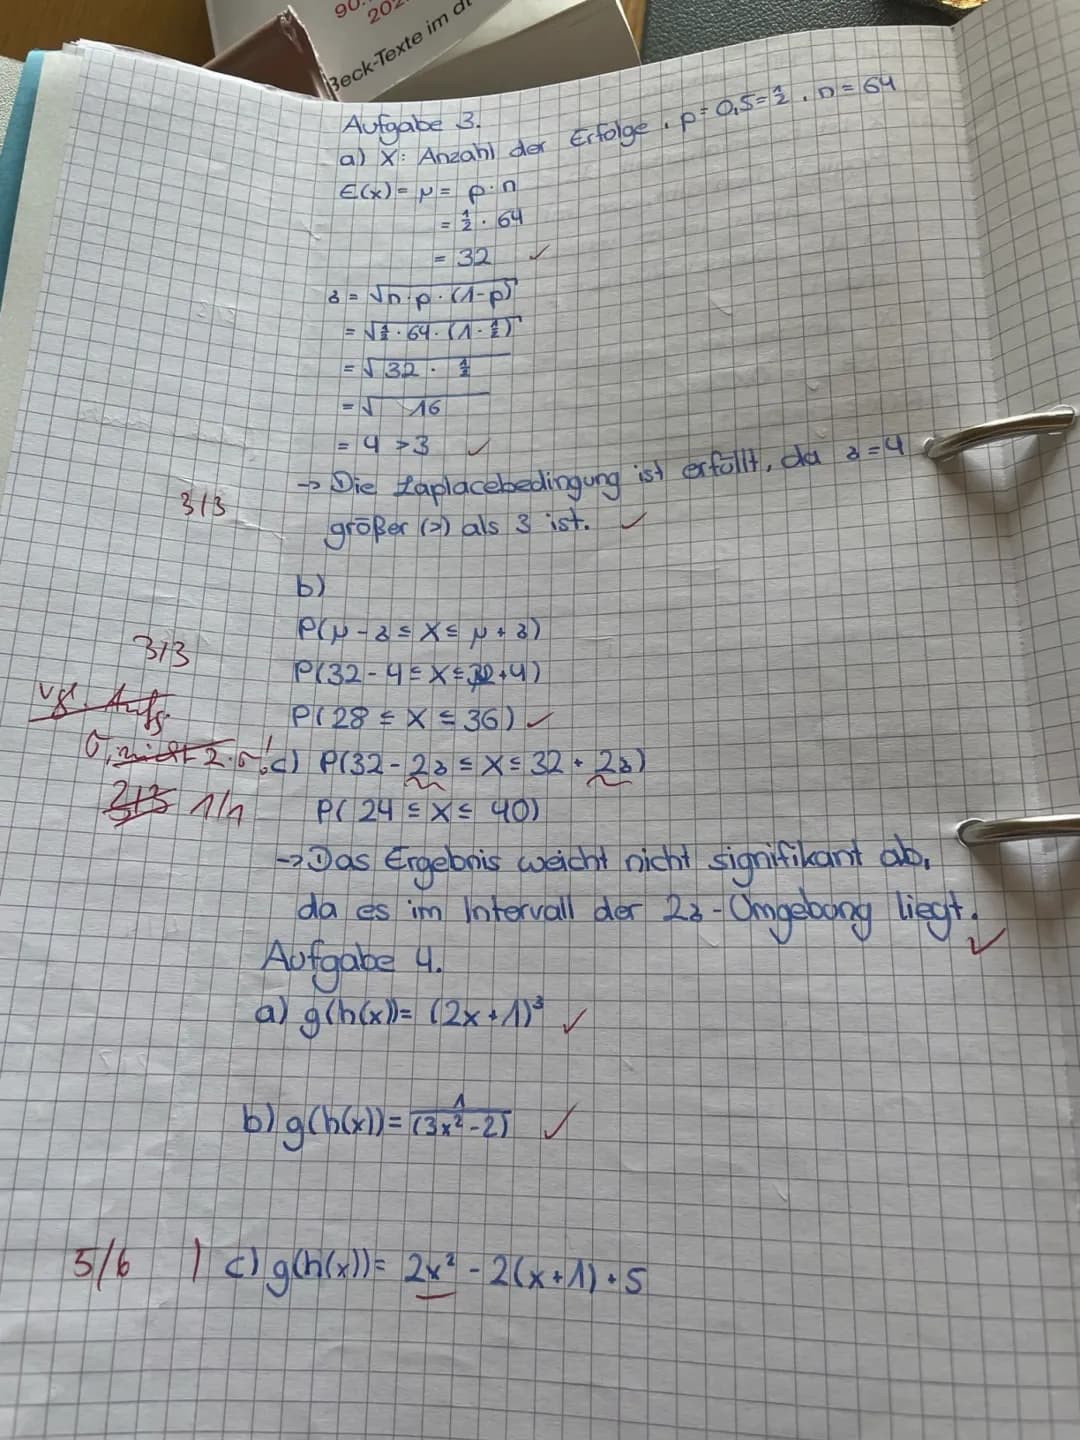 90.
202
Beck-Texte im dt
Aufgabe 3.
a) X: Anzahl der Erfolge, p = 0,5 = 1/2, n = 64
E(x) = μ = p · n
= 1/2 · 64
= 32 ✓
σ = √n · p · (1-p)
= √1/2 · 64 · (1 - 1/2)
= √32 · 1/2
= √16
= 4 > 3 ✓
→ Die Laplacebedingung ist erfüllt, da σ = 4
3/3
größer (>) als 3 ist. ✓
b)
P(μ - σ ≤ X ≤ μ + σ)
3/3
P(32 - 4 ≤ X ≤ 32 + 4)
vgl. Aufg.
P(28 ≤ X ≤ 36) ✓
σ, nicht 2·σ!
c) P(32 - 2σ ≤ X ≤ 32 + 2σ)
2/3 1/1
P(24 ≤ X ≤ 40)
→ Das Ergebnis weicht nicht signifikant ab,
da es im Intervall der 2σ-Umgebung liegt. ✓
Aufgabe 4.
a) g(h(x)) = (2x + 1)³ ✓
b) g(h(x)) = 1/(3x² - 2) ✓
5/6 | c) g(h(x)) = 2x² - 2(x + 1) + 5